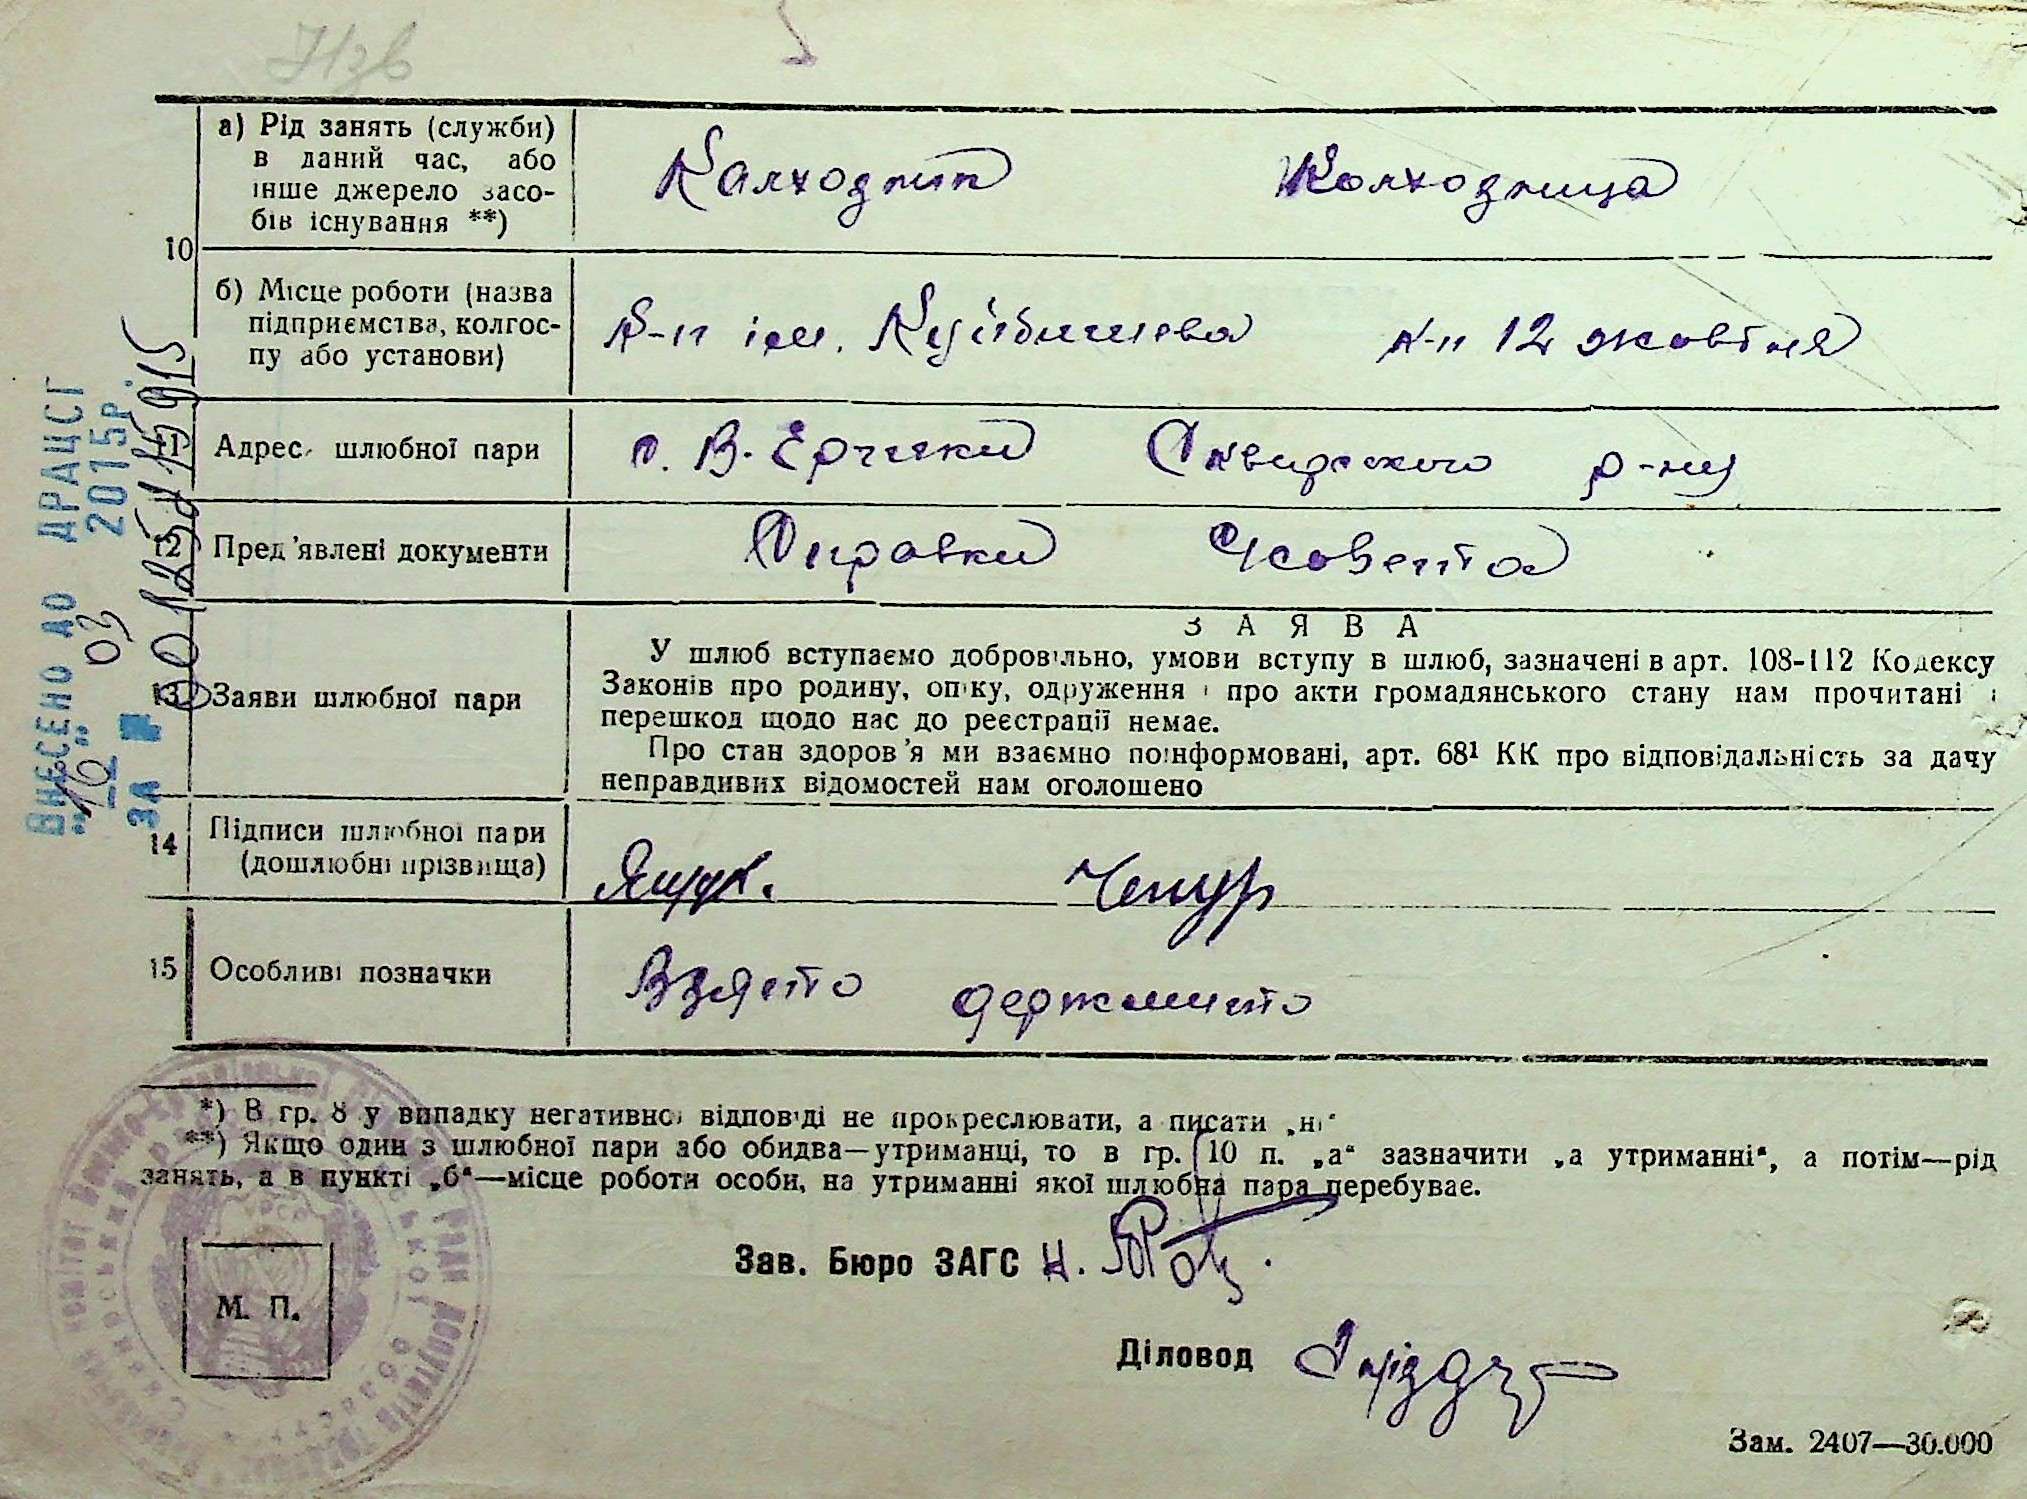 а) Рід занять (служби)
в даний час, або
інше джерело засо-
бів існування **)
Колхозник Колхозница
10
б) Місце роботи (назва
підприємства, колгос-
пу або установи)
к-п ім. Куйбишева к-п 12 жовтня
11 Адрес шлюбної пари с. В. Єрчики Сквирского р-ну
12 Пред'явлені документи Справки
13 Заяви шлюбної пари
ЗАЯВА
У шлюб вступаємо добровільно, умови вступу в шлюб, зазначені в арт. 108-112 Кодексу
Законів про родину, опіку, одруження і про акти громадянського стану нам прочитані і
перешкод щодо нас до реєстрації немає.
Про стан здоров'я ми взаємно поінформовані, арт. 68¹ КК про відповідальність за дачу
неправдивих відомостей нам оголошено
14 Підписи шлюбної пари
(дошлюбні прізвища)
Ящук. Чепур
15 Особливі позначки Взято держмито
*) В гр. 8 у випадку негативної відповіді не прокреслювати, а писати „ні"
**) Якщо один з шлюбної пари або обидва—утриманці, то в гр. 10 п. „а" зазначити „а утриманні", а потім—рід
занять, а в пункті „б"—місце роботи особи, на утриманні якої шлюбна пара перебуває.
Зав. Бюро ЗАГС
М. П.
Діловод
Зам. 2407—30.000
ВНЕСЕНО ДО ДРАЦСГ
"16" 03 2015р.
ЗА №